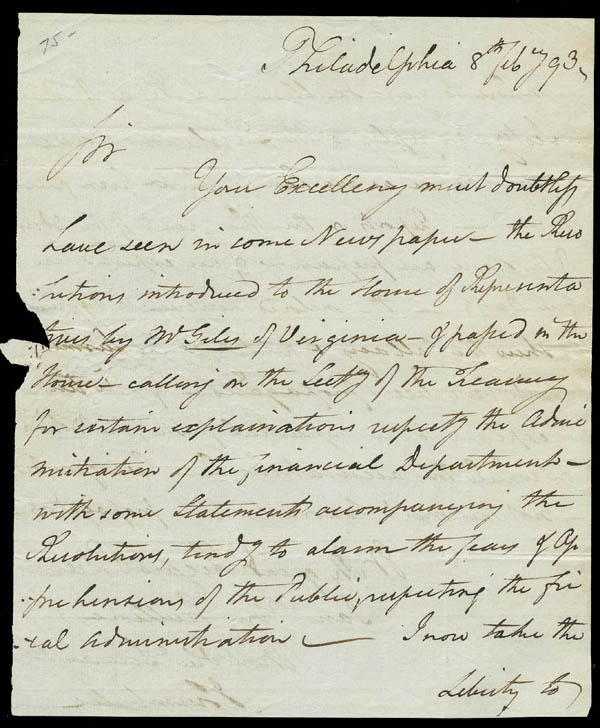 75-
Philadelphia 8th Feby 93
Sir
Your Excellency must doubtless
have seen in some News paper - the Reso
lutions introduced to the House of Representa
tives by Mr Giles of Virginia - & passed in the
House - calling on the Secty of the Treasury
for certain explainations respectg the Admi
nistration of the Financial Department -
with some Statements accompanying the
Resolutions, tendg to alarm the fears & Ap
prehensions of the Public, respecting the fis
cal Administration - I now take the
Liberty to